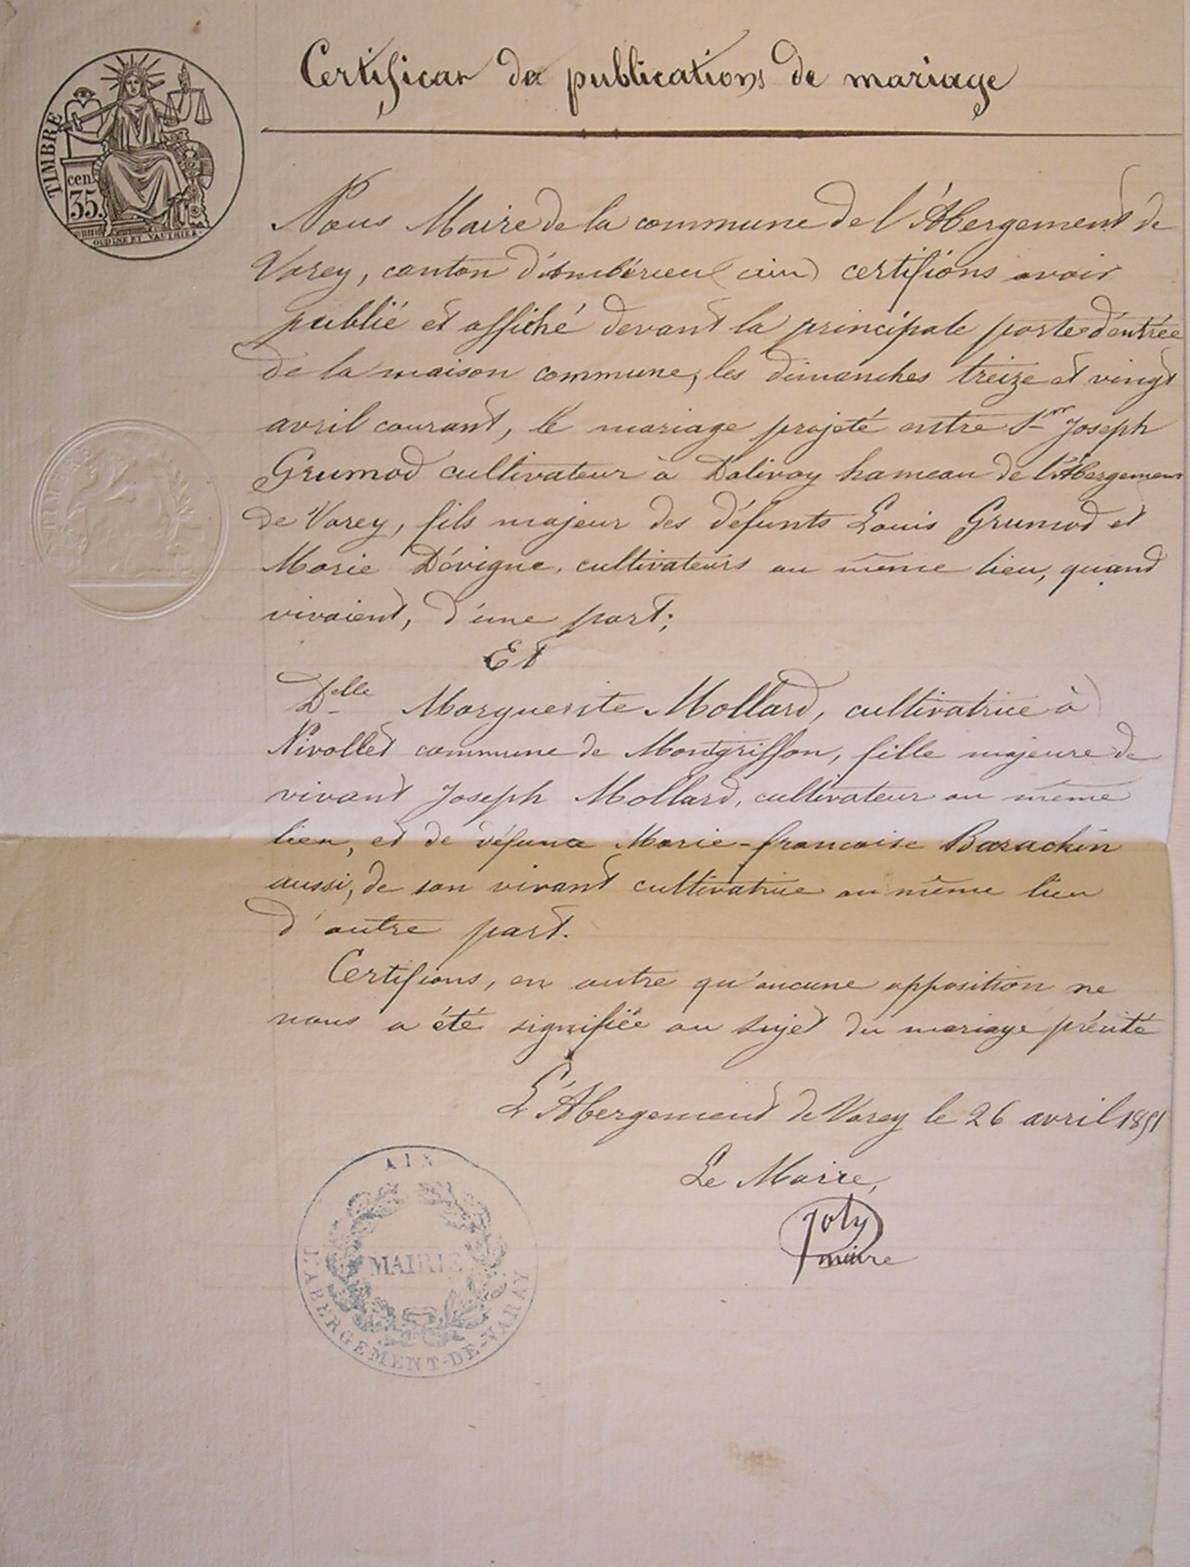 Certificat de publications de mariage
TIMBRE
cen.
35.
OUDINE ET VAUTHIER
Nous Maire de la commune de l'Abergement de
Varey, canton d'Ambérieu (ain) certifions avoir
publié et affiché devant la principale porte d'entrée
de la maison commune, les dimanches treize et vingt
avril courant, le mariage projeté entre Sr Joseph
Grumod cultivateur à Dalivoy hameau de l'Abergement
de Varey, fils majeur des défunts Louis Grumod et
Marie Dévigne, cultivateurs au même lieu, quand
vivaient, d'une part;
Et
Delle Marguerite Mollard, cultivatrice à
Nivollet commune de Montgriffon, fille majeure de
vivant Joseph Mollard, cultivateur au même
lieu, et de défunte Marie-francoise Barachin
aussi, de son vivant cultivatrice au même lieu
d'autre part.
Certifions, en outre qu'aucune opposition ne
nous a été signifiée au sujet du mariage précité
L'Abergement de Varey le 26 avril 1851
Le Maire,
Joly
maire
AIN
MAIRIE
L'ABERGEMENT-DE-VAREY